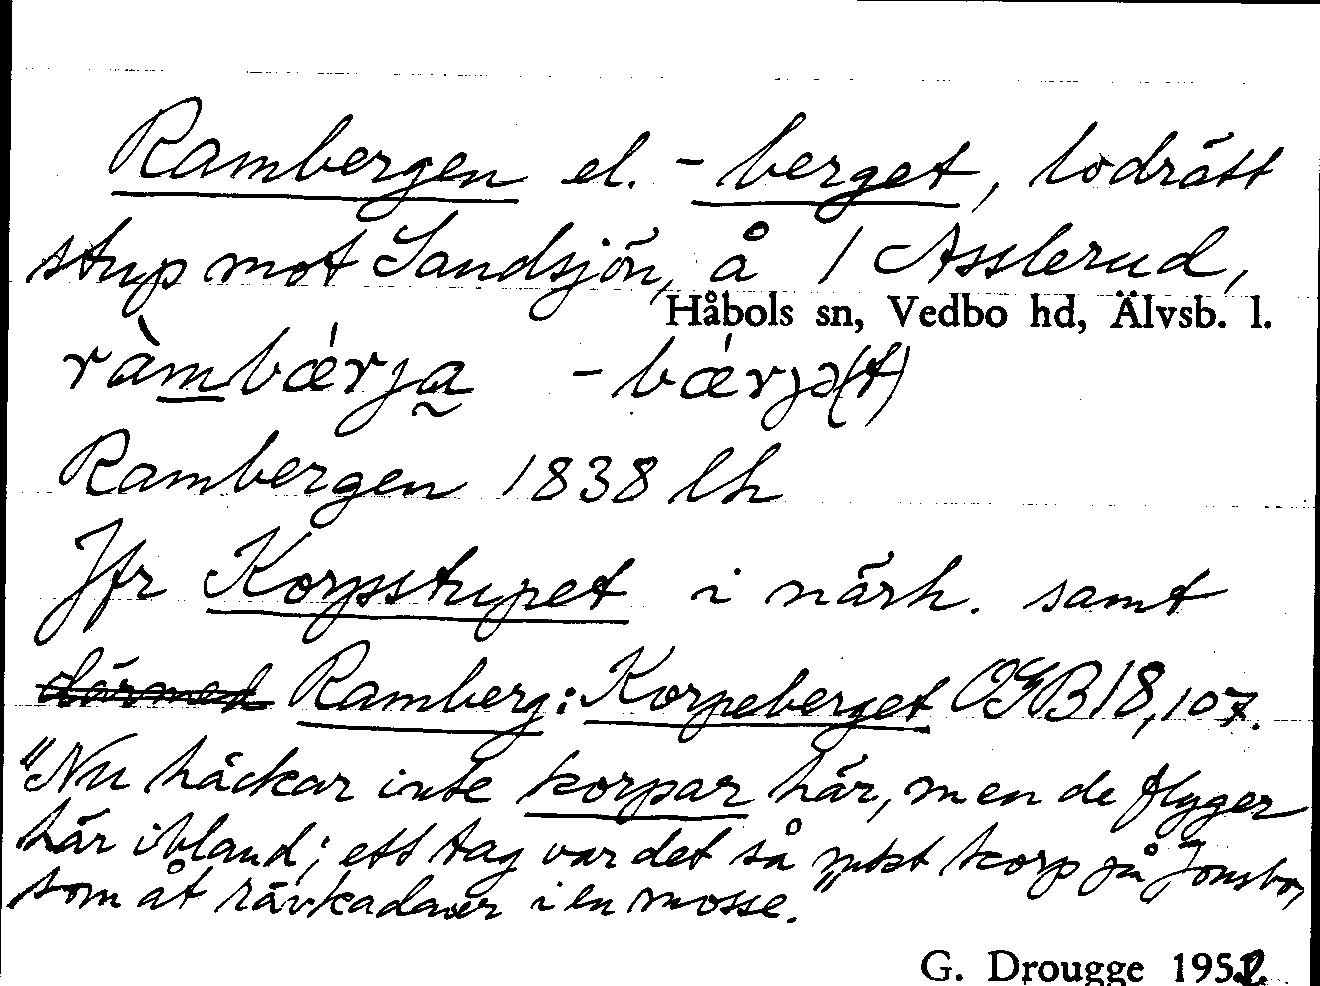 Rambergen el. -berget, lodrätt
stup mot Sandsjön, å 1 Asslerud,
Håbols sn, Vedbo hd, Älvsb. l.
ràmbǽrja -bǽrjə(t)
Rambergen 1838 lh
Jfr Korpstupet i närh. samt
därmed Ramberg: Korpeberget OGB 18, 107.
"Nu häckar inte korpar här, men de flyger
här ibland; ett tag var det så mkt korp på Jonsbo,
som åt rävkadaver i en mosse."
G. Drougge 1952